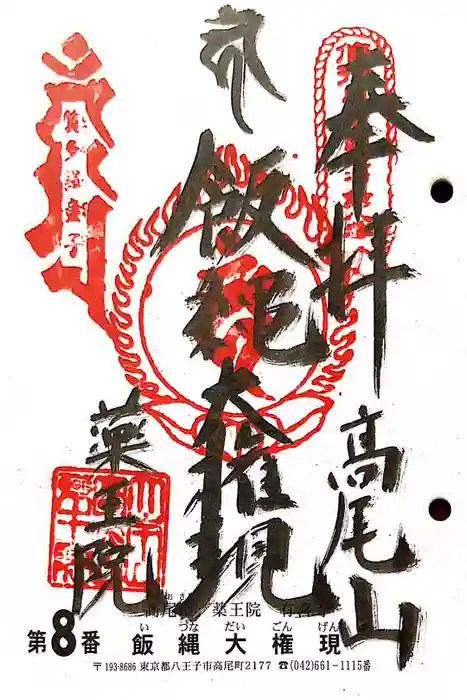 奉拝
高尾山
飯縄大権現
薬王院
高尾山 薬王院 有喜寺
い づな だい ごん げん
第8番 飯縄大権現
〒193-8686 東京都八王子市高尾町2177 ☎(042)661-1115番